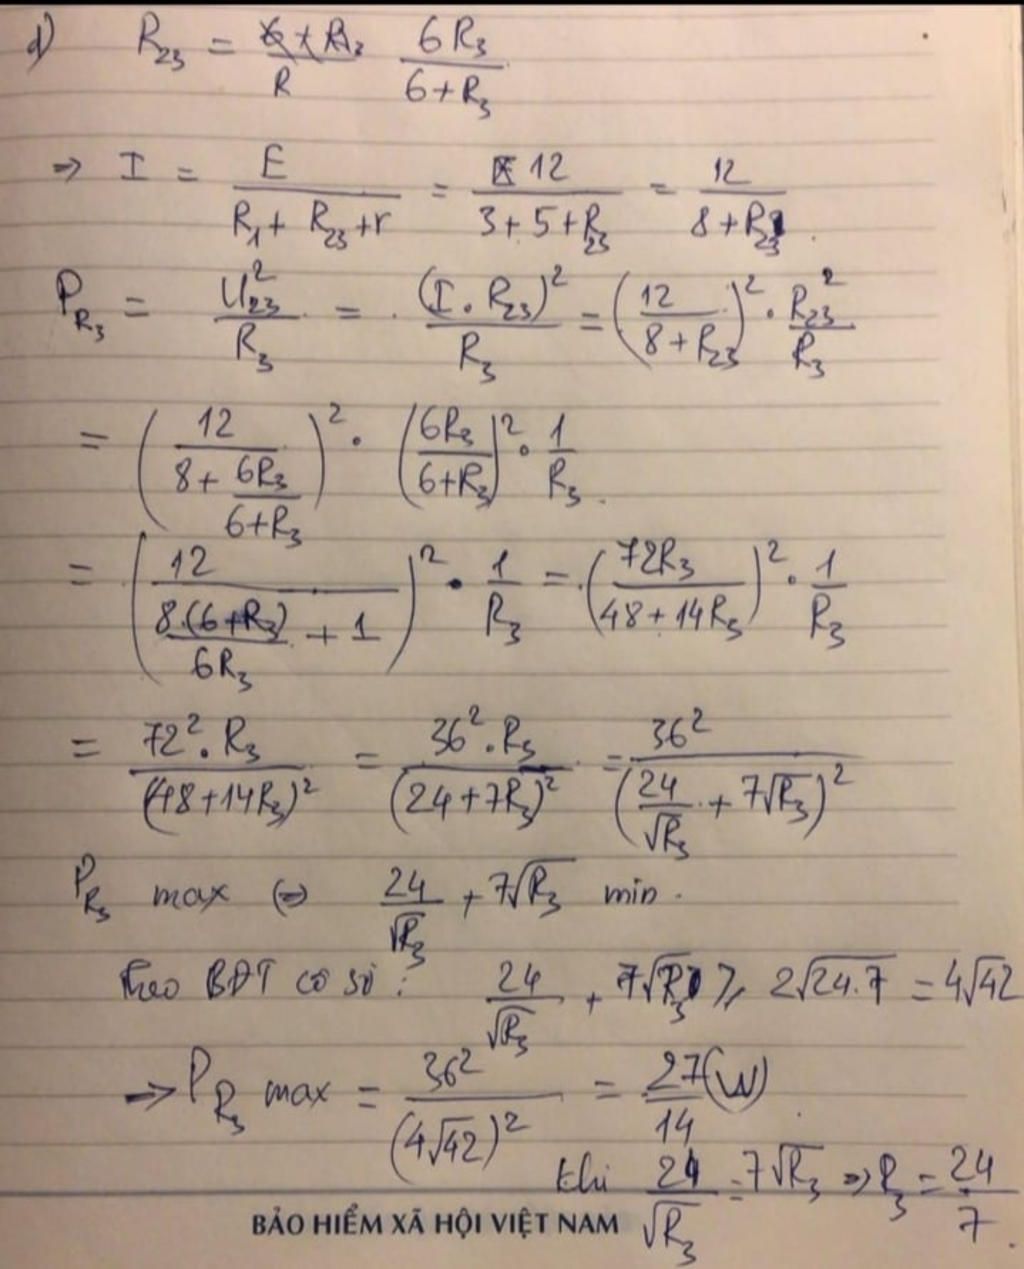 d) R₂₃ = 6R₃/(6+R₃)
⇒ I = E/(R₁ + R₂₃ + r) = 12/(3+5+R₂₃) = 12/(8+R₂₃).
P_R₃ = U₂₃²/R₃ = (I.R₂₃)²/R₃ = (12/(8+R₂₃))² . R₂₃²/R₃
= (12/(8 + 6R₃/(6+R₃)))² . (6R₃/(6+R₃))² . 1/R₃.
= (12/(8.(6+R₃)/(6R₃) + 1))² . 1/R₃ = (72R₃/(48+14R₃))² . 1/R₃
= 72².R₃/(48+14R₃)² = 36².R₃/(24+7R₃)² = 36²/(24/√R₃ + 7√R₃)²
P_R₃ max ⇔ 24/√R₃ + 7√R₃ min.
Theo BĐT cô si : 24/√R₃ + 7√R₃ ≥ 2√(24.7) = 4√42
→ P_R₃ max = 36²/(4√42)² = 27/14 (W)
khi 24/√R₃ = 7√R₃ ⇒ R₃ = 24/7.
BẢO HIỂM XÃ HỘI VIỆT NAM